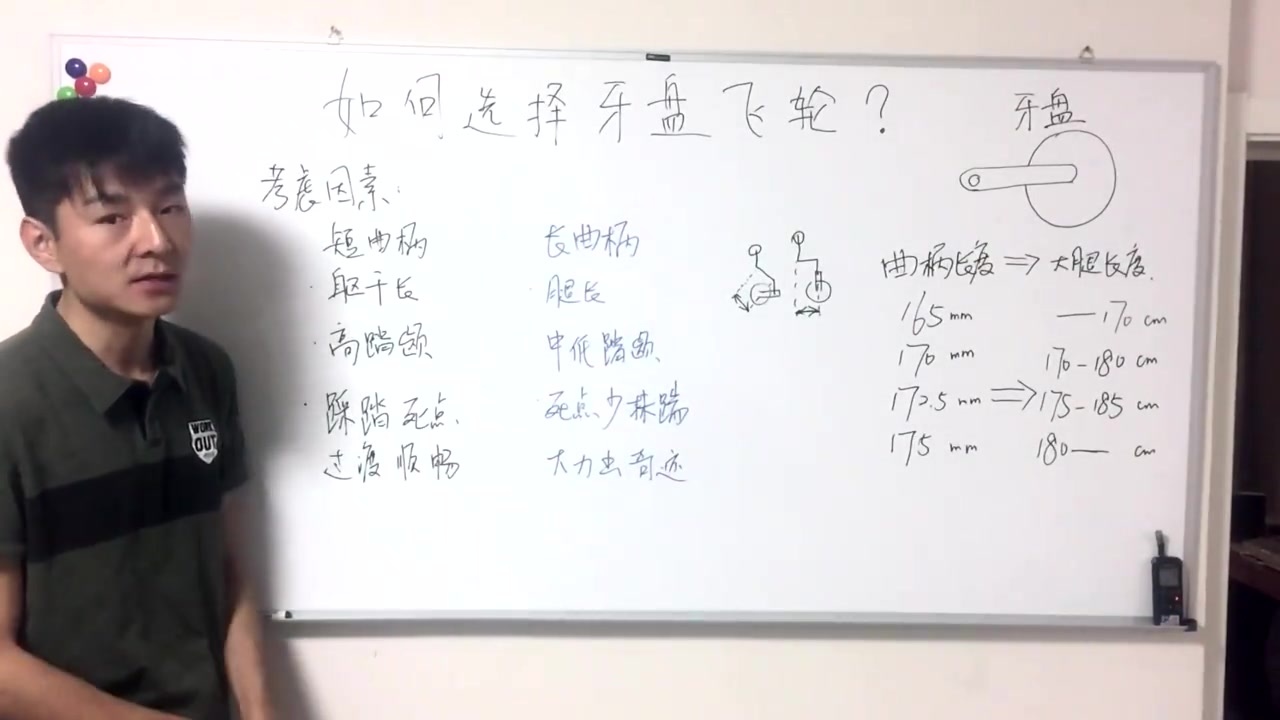 如何选择牙盘飞轮?
牙盘
考虑因素:
短曲柄 长曲柄
·躯干长 ·腿长
·高踏频 中低踏频
·踩踏死点 ·死点少抹踹
过渡顺畅 大力出奇迹
曲柄长度 ⇒ 大腿长度.
165 mm —170 cm
170 mm 170-180 cm
172.5 mm ⇒ 175-185 cm
175 mm 180— cm
WORK
OUT